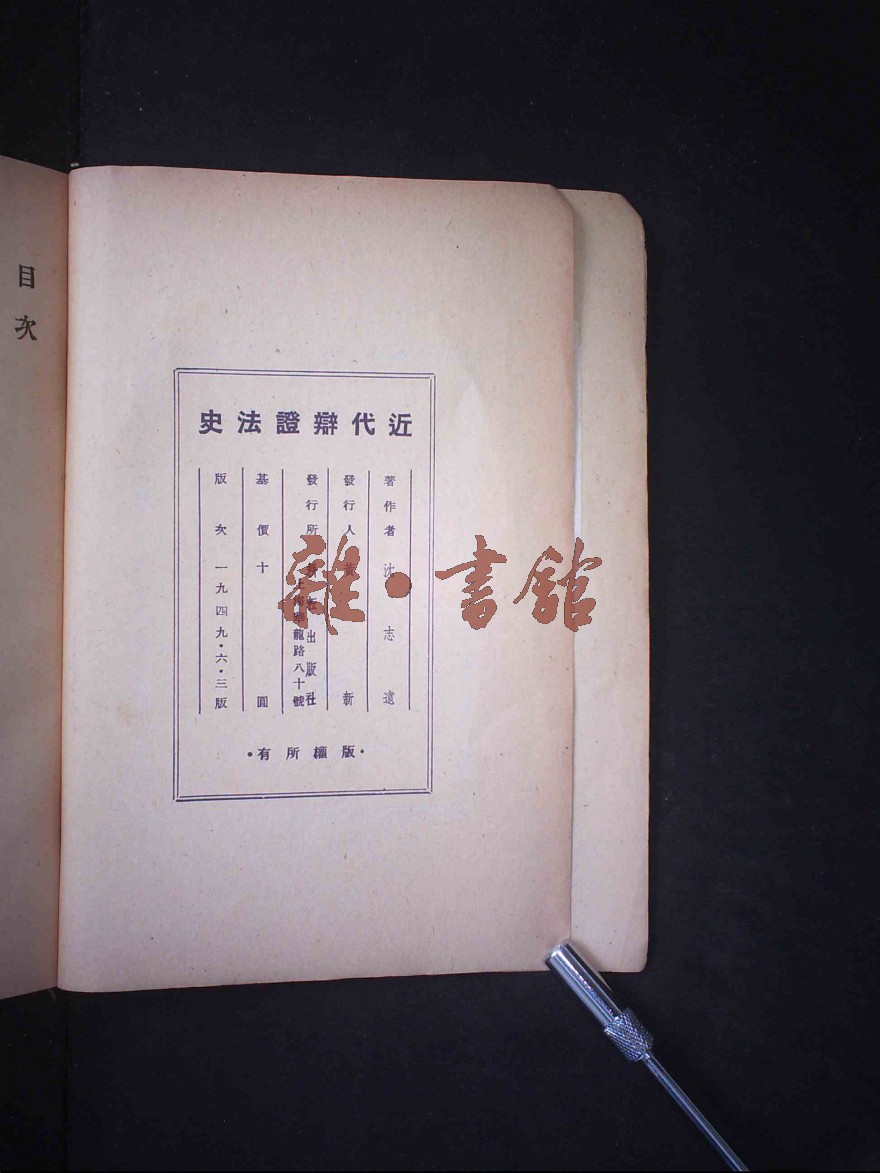 近代辯證法史
著作者 沈志遠
發行人 黃新
發行所 出版社
上海 龍路八十號
基價十圓
版次 一九四九·六·三版
·版權所有·
目次
雜·書館